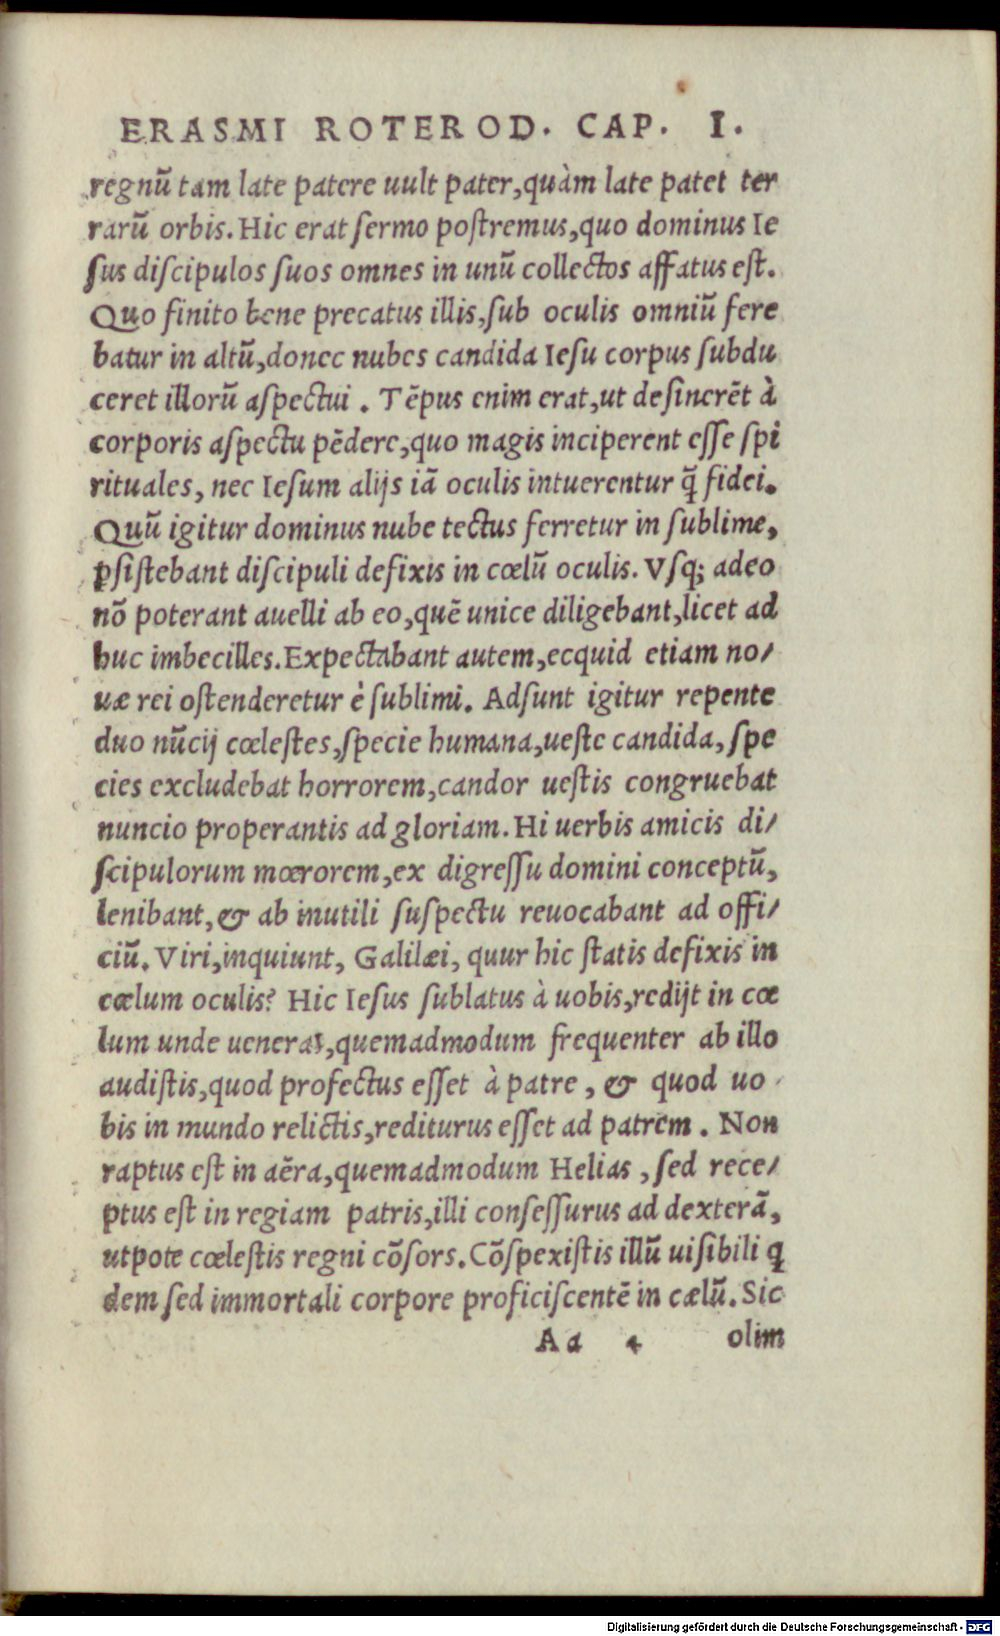 ERASMI ROTEROD. CAP. I.
regnũ tam late patere uult pater,quàm late patet ter
rarũ orbis. Hic erat ſermo poſtremus,quo dominus Ie
ſus diſcipulos ſuos omnes in unũ collectos affatus eſt.
Quo finito bene precatus illis,ſub oculis omniũ fere
batur in altũ,donec nubes candida Ieſu corpus ſubdu
ceret illorũ aſpectui. Tẽpus enim erat,ut deſinerẽt à
corporis aſpectu pẽdere,quo magis inciperent eſſe ſpi
rituales, nec Ieſum alijs iã oculis intuerentur q̃ fidei.
Quũ igitur dominus nube tectus ferretur in ſublime,
ꝑſiſtebant diſcipuli defixis in cœlũ oculis. Vſq; adeo
nõ poterant auelli ab eo,quẽ unice diligebant,licet ad
huc imbecilles. Expectabant autem,ecquid etiam no/
uæ rei oſtenderetur è ſublimi. Adſunt igitur repente
duo nũcij cœleſtes,ſpecie humana,ueſte candida, ſpe
cies excludebat horrorem,candor ueſtis congruebat
nuncio properantis ad gloriam. Hi uerbis amicis di/
ſcipulorum mœrorem,ex digreſſu domini conceptũ,
lenibant,& ab inutili ſuſpectu reuocabant ad offi/
ciũ. Viri,inquiunt, Galilæi, quur hic ſtatis defixis in
cœlum oculis? Hic Ieſus ſublatus à uobis,redijt in cœ
lum unde uenerat,quemadmodum frequenter ab illo
audiſtis,quod profectus eſſet à patre, & quod uo
bis in mundo relictis,rediturus eſſet ad patrem. Non
raptus eſt in aẽra,quemadmodum Helias, ſed rece/
ptus eſt in regiam patris,illi conſeſſurus ad dexterã,
utpote cœleſtis regni cõſors. Cõſpexiſtis illũ uiſibili ꝗ
dem ſed immortali corpore proficiſcentẽ in cælũ. Sic
Aa 4 olim
Digitalisierung gefördert durch die Deutsche Forschungsgemeinschaft - DFG